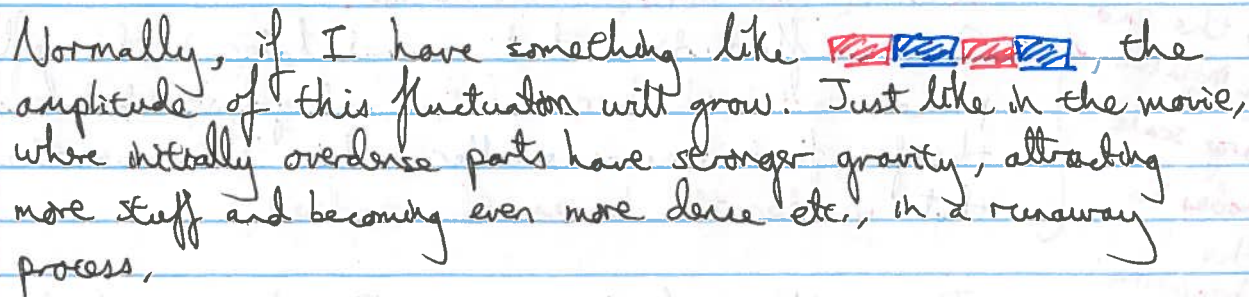 Normally, if I have something like , the
amplitude of this fluctuation will grow. Just like in the movie,
where initially overdense parts have stronger gravity, attracting
more stuff and becoming even more dense etc., in a runaway
process,